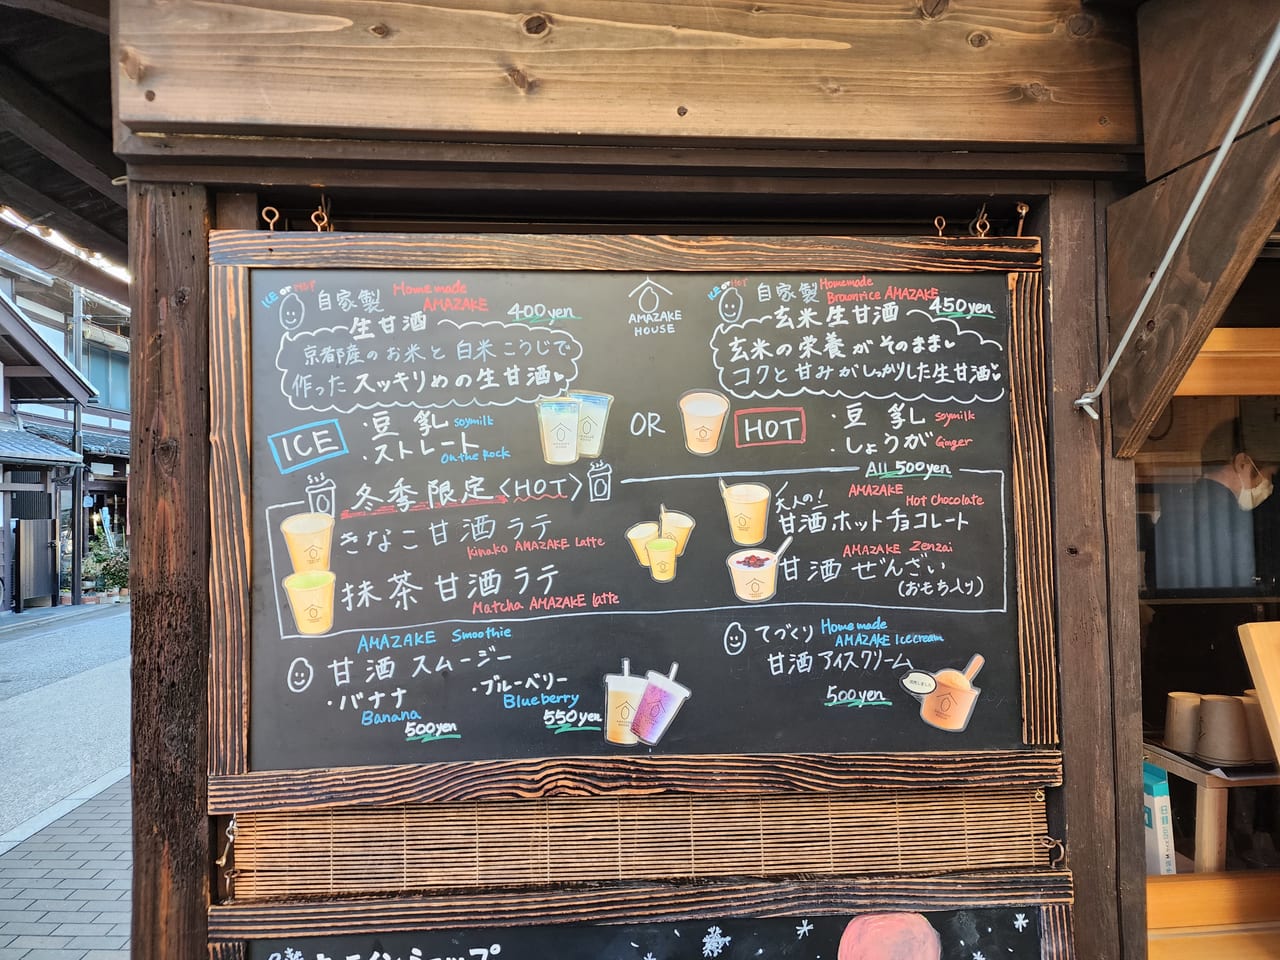 ICE or HOT
自家製
Homemade
AMAZAKE
400yen
生甘酒
京都産のお米と白米こうじで
作ったスッキリめの生甘酒
AMAZAKE
HOUSE
ICE or HOT
自家製
Homemade
Brownrice AMAZAKE
450yen
玄米生甘酒
玄米の栄養がそのまま
コクと甘みがしっかりした生甘酒
ICE
・豆乳 soymilk
・ストレート
On the Rock
OR
HOT
・豆乳 soymilk
・しょうが Ginger
冬季限定〈HOT〉
All 500yen
きなこ甘酒ラテ
Kinako AMAZAKE Latte
抹茶甘酒ラテ
Matcha AMAZAKE latte
大人の!
AMAZAKE
Hot chocolate
甘酒ホットチョコレート
AMAZAKE Zenzai
甘酒ぜんざい
(おもち入り)
AMAZAKE Smoothie
甘酒スムージー
・バナナ
Banana
500yen
・ブルーベリー
Blueberry
550yen
てづくり
Homemade
AMAZAKE Icecream
甘酒アイスクリーム
500yen